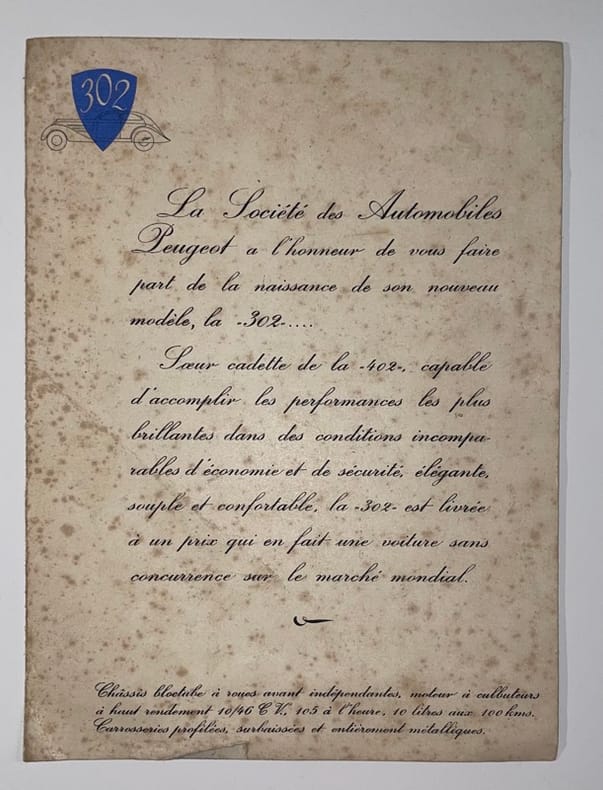 302
La Société des Automobiles
Peugeot a l'honneur de vous faire
part de la naissance de son nouveau
modèle, la -302-....
Sœur cadette de la -402-, capable
d'accomplir les performances les plus
brillantes dans des conditions incompa-
rables d'économie et de sécurité, élégante,
souple et confortable, la -302- est livrée
à un prix qui en fait une voiture sans
concurrence sur le marché mondial.
Châssis bloctube à roues avant indépendantes, moteur à culbuteurs
à haut rendement 10/46 C.V., 105 à l'heure, 10 litres aux 100 kms.
Carrosseries profilées, surbaissées et entièrement métalliques.